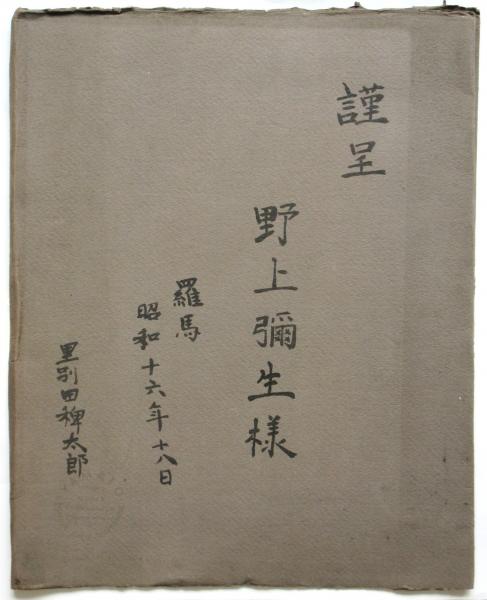 謹呈
野上彌生様
羅馬
昭和十六年十八日
里別田稗太郎